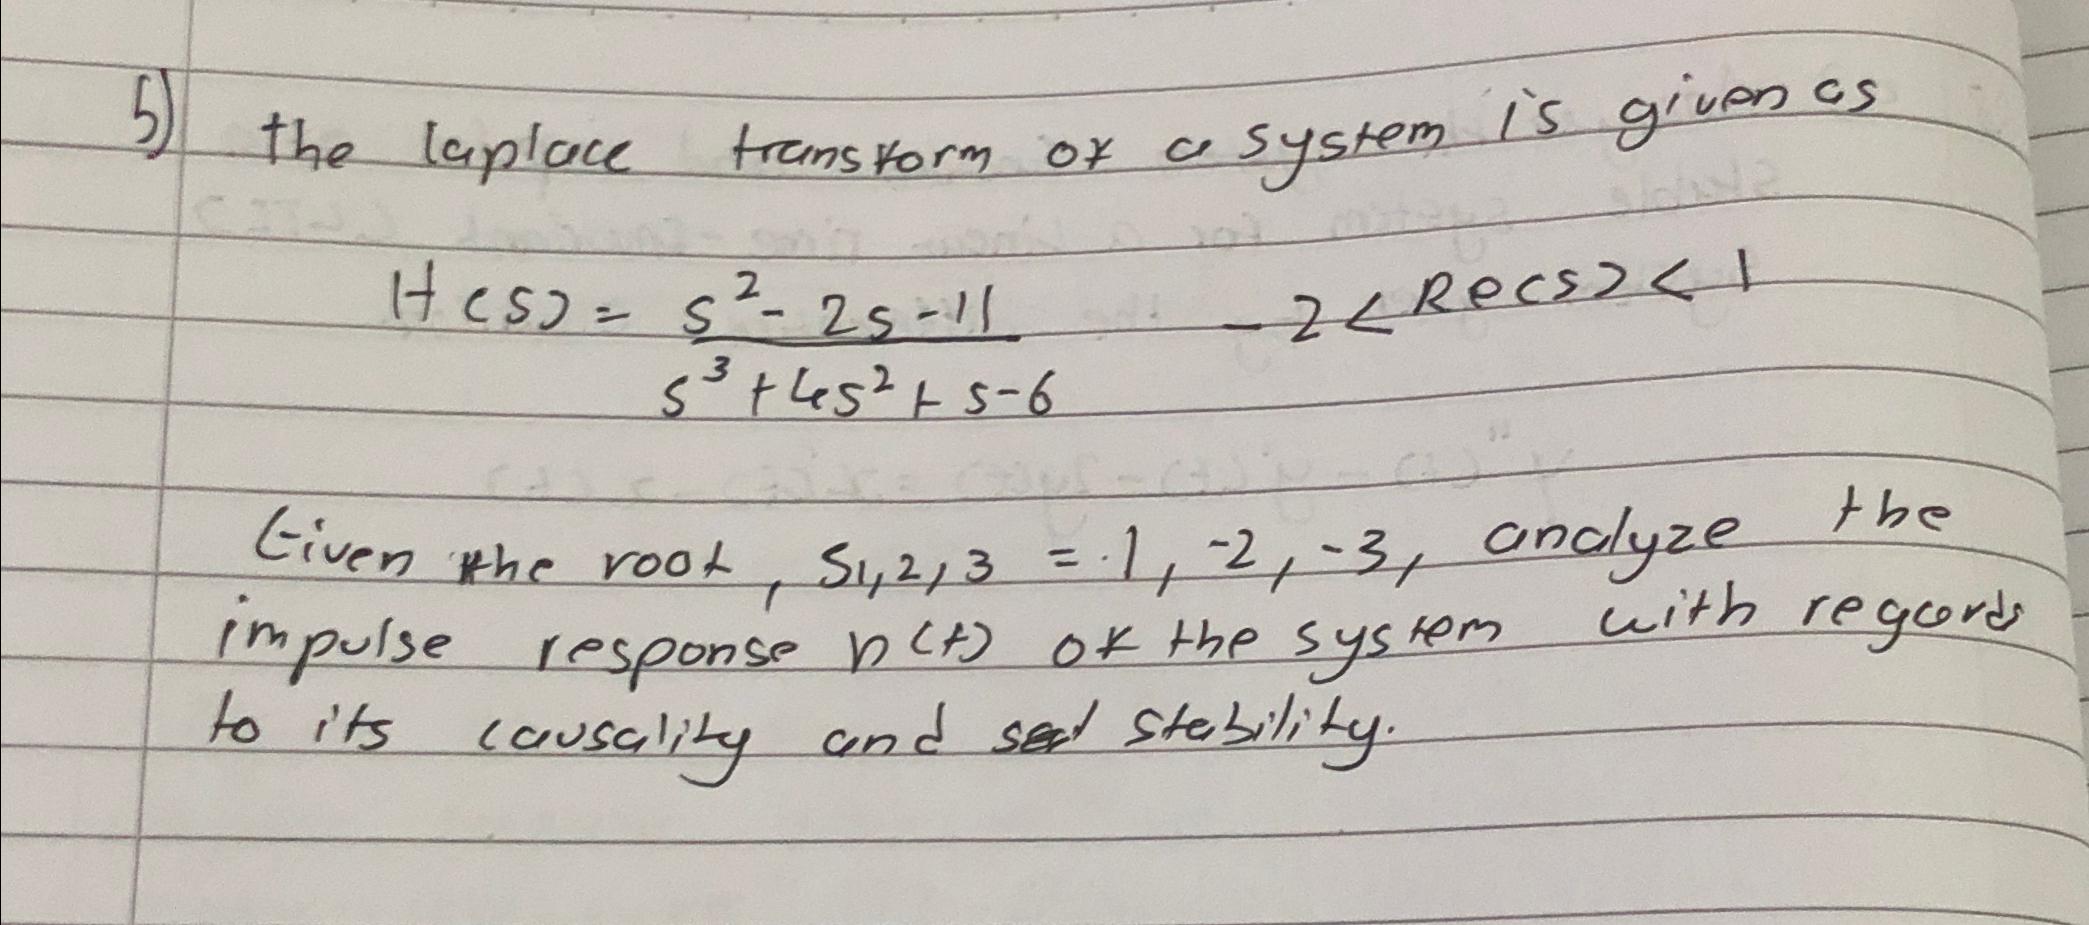 5) the laplace transform of a system is given as
H(s) = s² - 2s - 11 / s³ + 4s² + s - 6    -2 < Re(s) < 1
Given the root, S1,2,3 = 1, -2, -3, analyze the
impulse response h(t) of the system with regards
to its causality and stability.